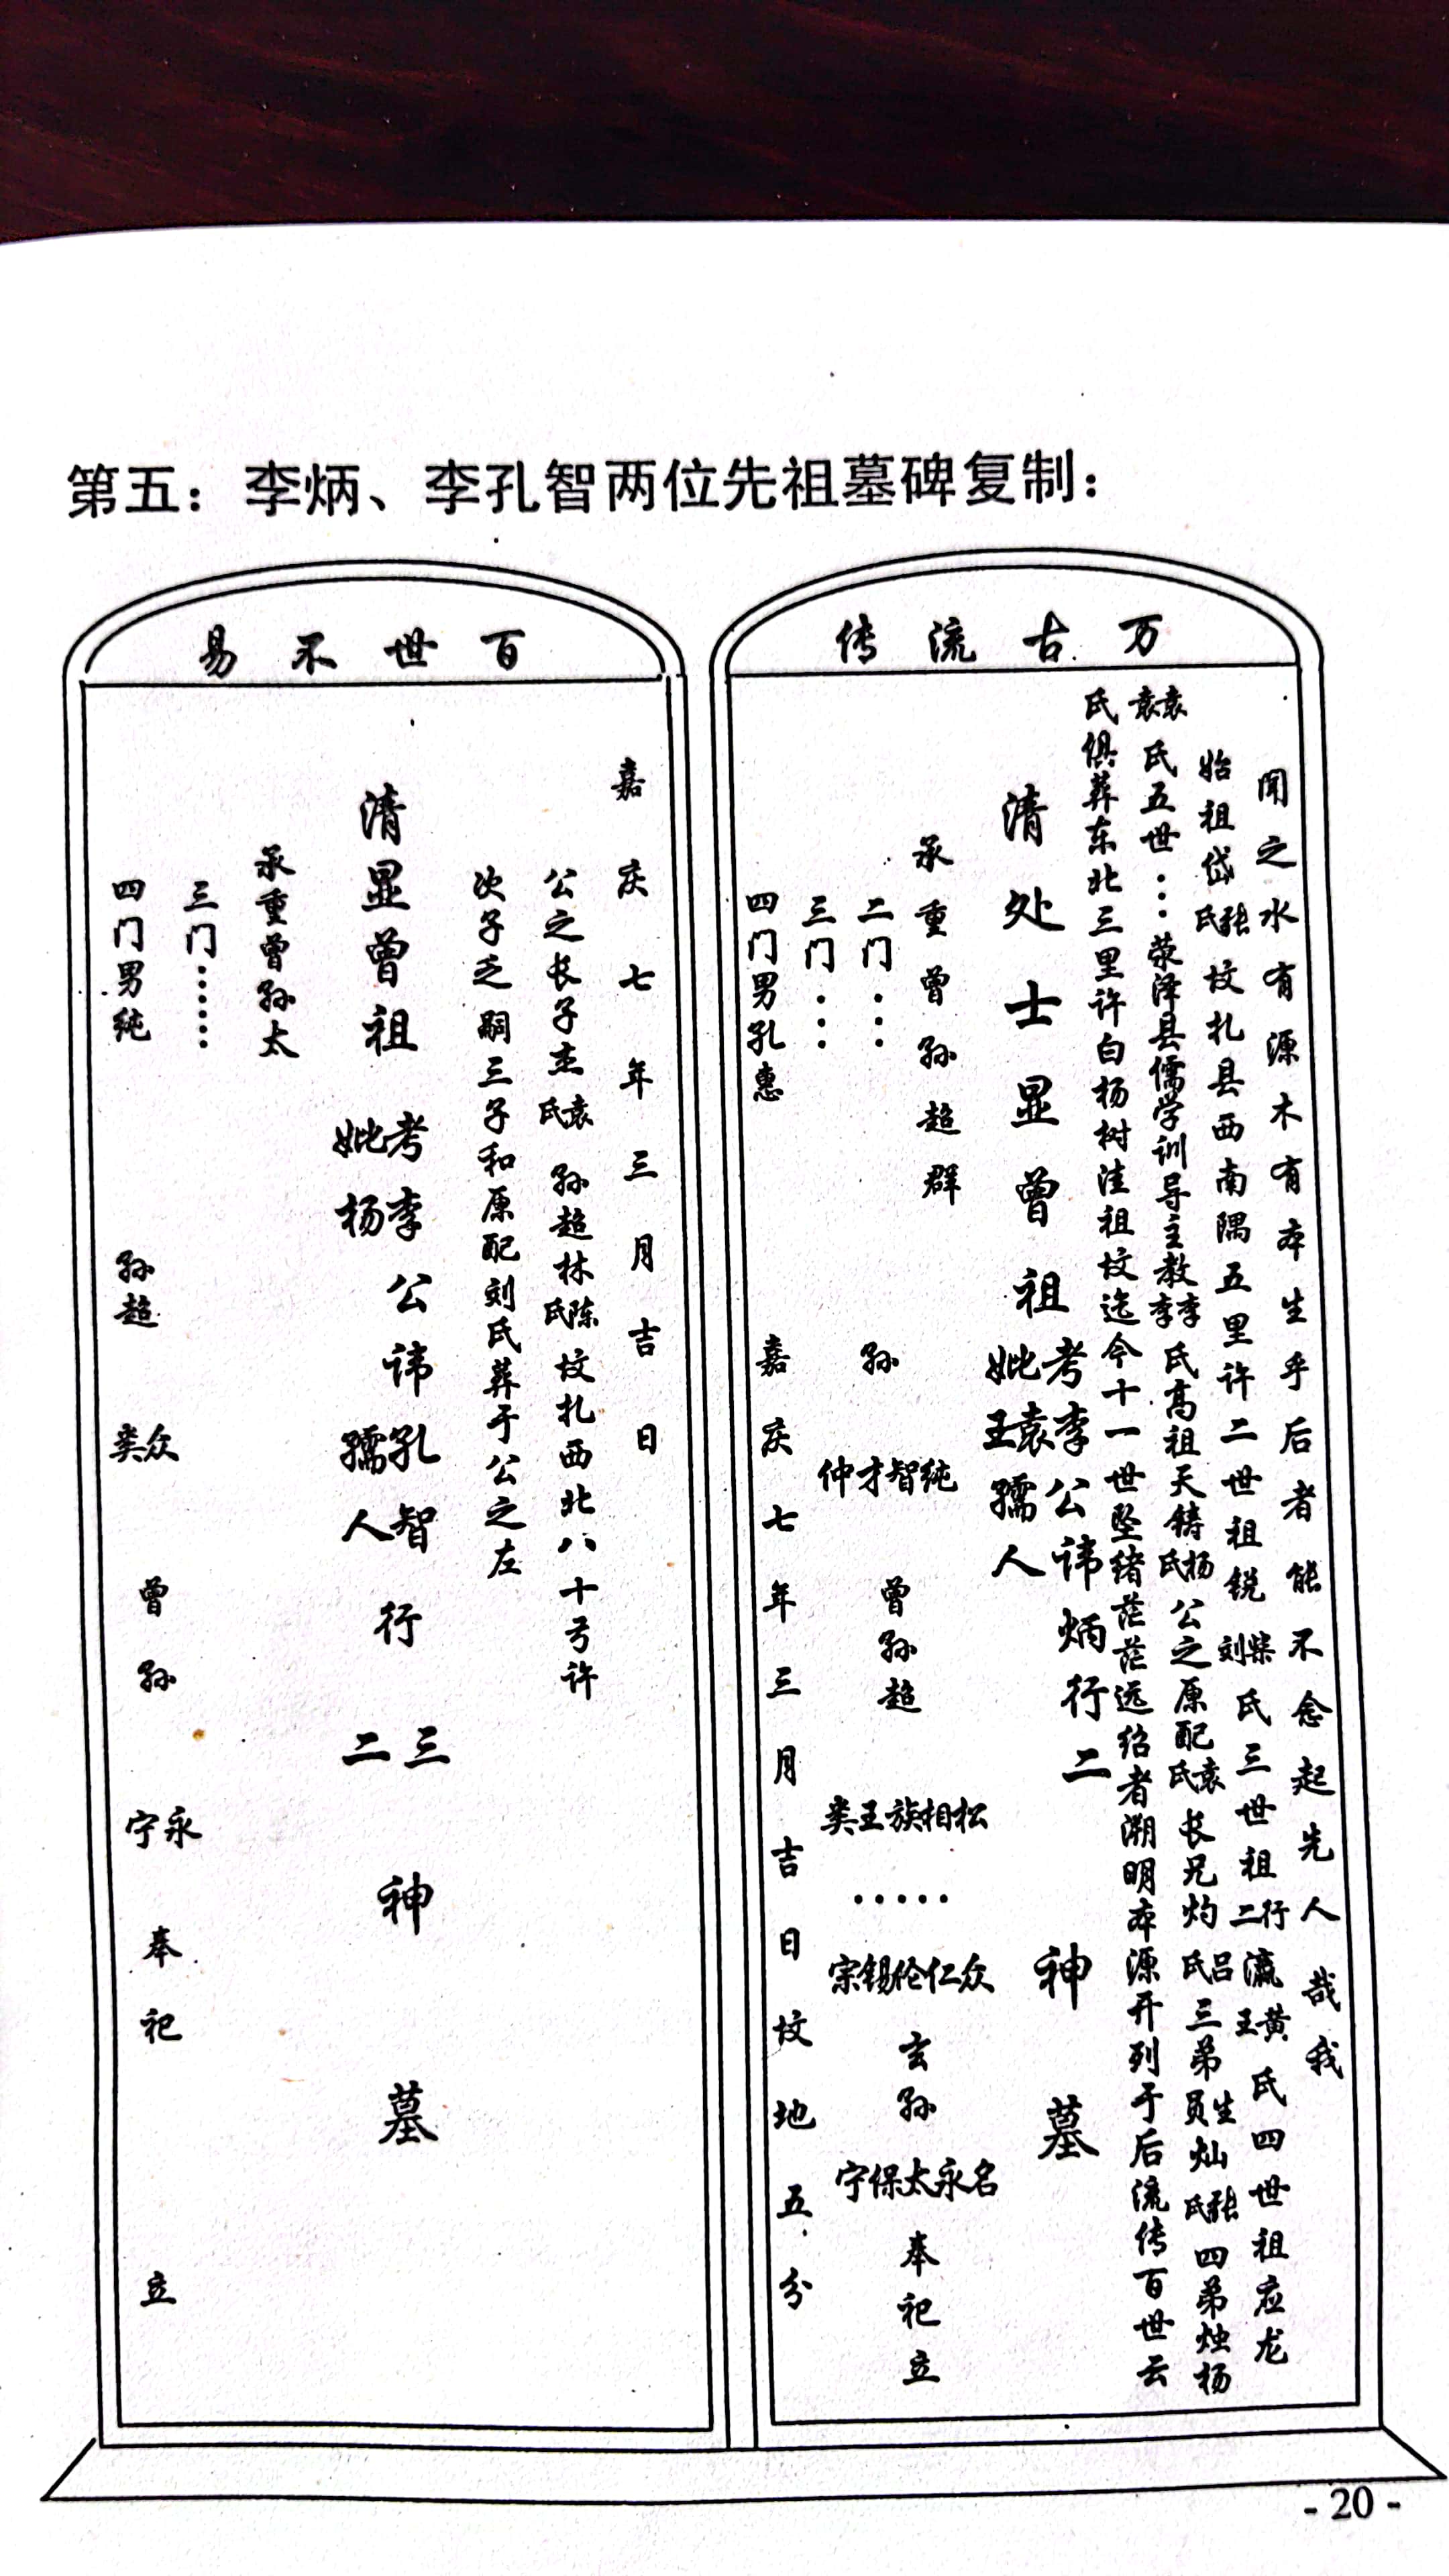 第五：李炳、李孔智两位先祖墓碑复制：
万古流传
闻之水有源木有本生乎后者能不念起先人哉我
始祖岱张氏坟扎县西南隅五里许二世祖锐柴刘氏三世祖行二瀛黄王氏四世祖应龙
袁袁氏五世……荥泽县儒学训导主教李李氏高祖天铸杨氏公之原配袁氏长兄灼吕氏三弟生员灿张氏四弟烛杨
氏俱葬东北三里许白杨树洼祖坟迄今十一世坠绪茫茫远绍者溯明本源开列于后流传百世云
清处士显曾祖考妣李袁王公孺人讳炳行二神墓
承重曾孙超群
二门……
三门……
四门男孔惠
孙
纯智才仲
曾孙超
松相族王类
……
众仁伦锡宗
玄孙
名永太保宁
奉祀立
嘉庆七年三月吉日坟地五分
百世不易
嘉庆七年三月吉日
公之长子杰袁氏孙超林陈氏坟扎西北八十弓许
次子乏嗣三子和原配刘氏葬于公之左
清显曾祖考妣李杨公讳孔智孺人行三二神墓
承重曾孙太
三门……
四门男纯
孙超
众类
曾孙
永宁
奉祀
立
- 20 -